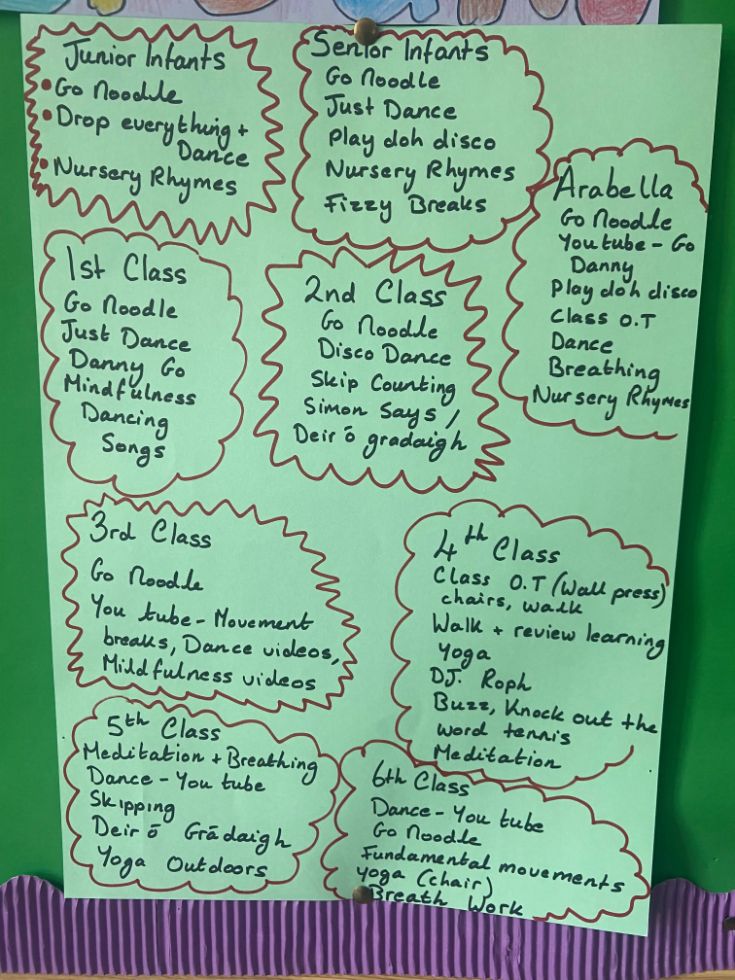 Junior Infants
• Go Noodle
• Drop everything +
Dance
• Nursery Rhymes
Senior Infants
Go Noodle
Just Dance
Play doh disco
Nursery Rhymes
Fizzy Breaks
Arabella
Go Noodle
You tube - Go
Danny
Play doh disco
Class O.T
Dance
Breathing
Nursery Rhymes
1st Class
Go Noodle
Just Dance
Danny Go
Mindfulness
Dancing
Songs
2nd Class
Go Noodle
Disco Dance
Skip Counting
Simon Says /
Deir ō gradaigh
3rd Class
Go Noodle
You tube - Movement
breaks, Dance videos,
Mildfulness videos
4th Class
Class O.T (Wall press)
chairs, walk
Walk + review learning
Yoga
DJ. Roph
Buzz, Knock out the
word tennis
Meditation
5th Class
Meditation + Breathing
Dance - You tube
Skipping
Deir ō Grādaigh
Yoga Outdoors
6th Class
Dance - You tube
Go Noodle
Fundamental movements
Yoga (chair)
Breath Work